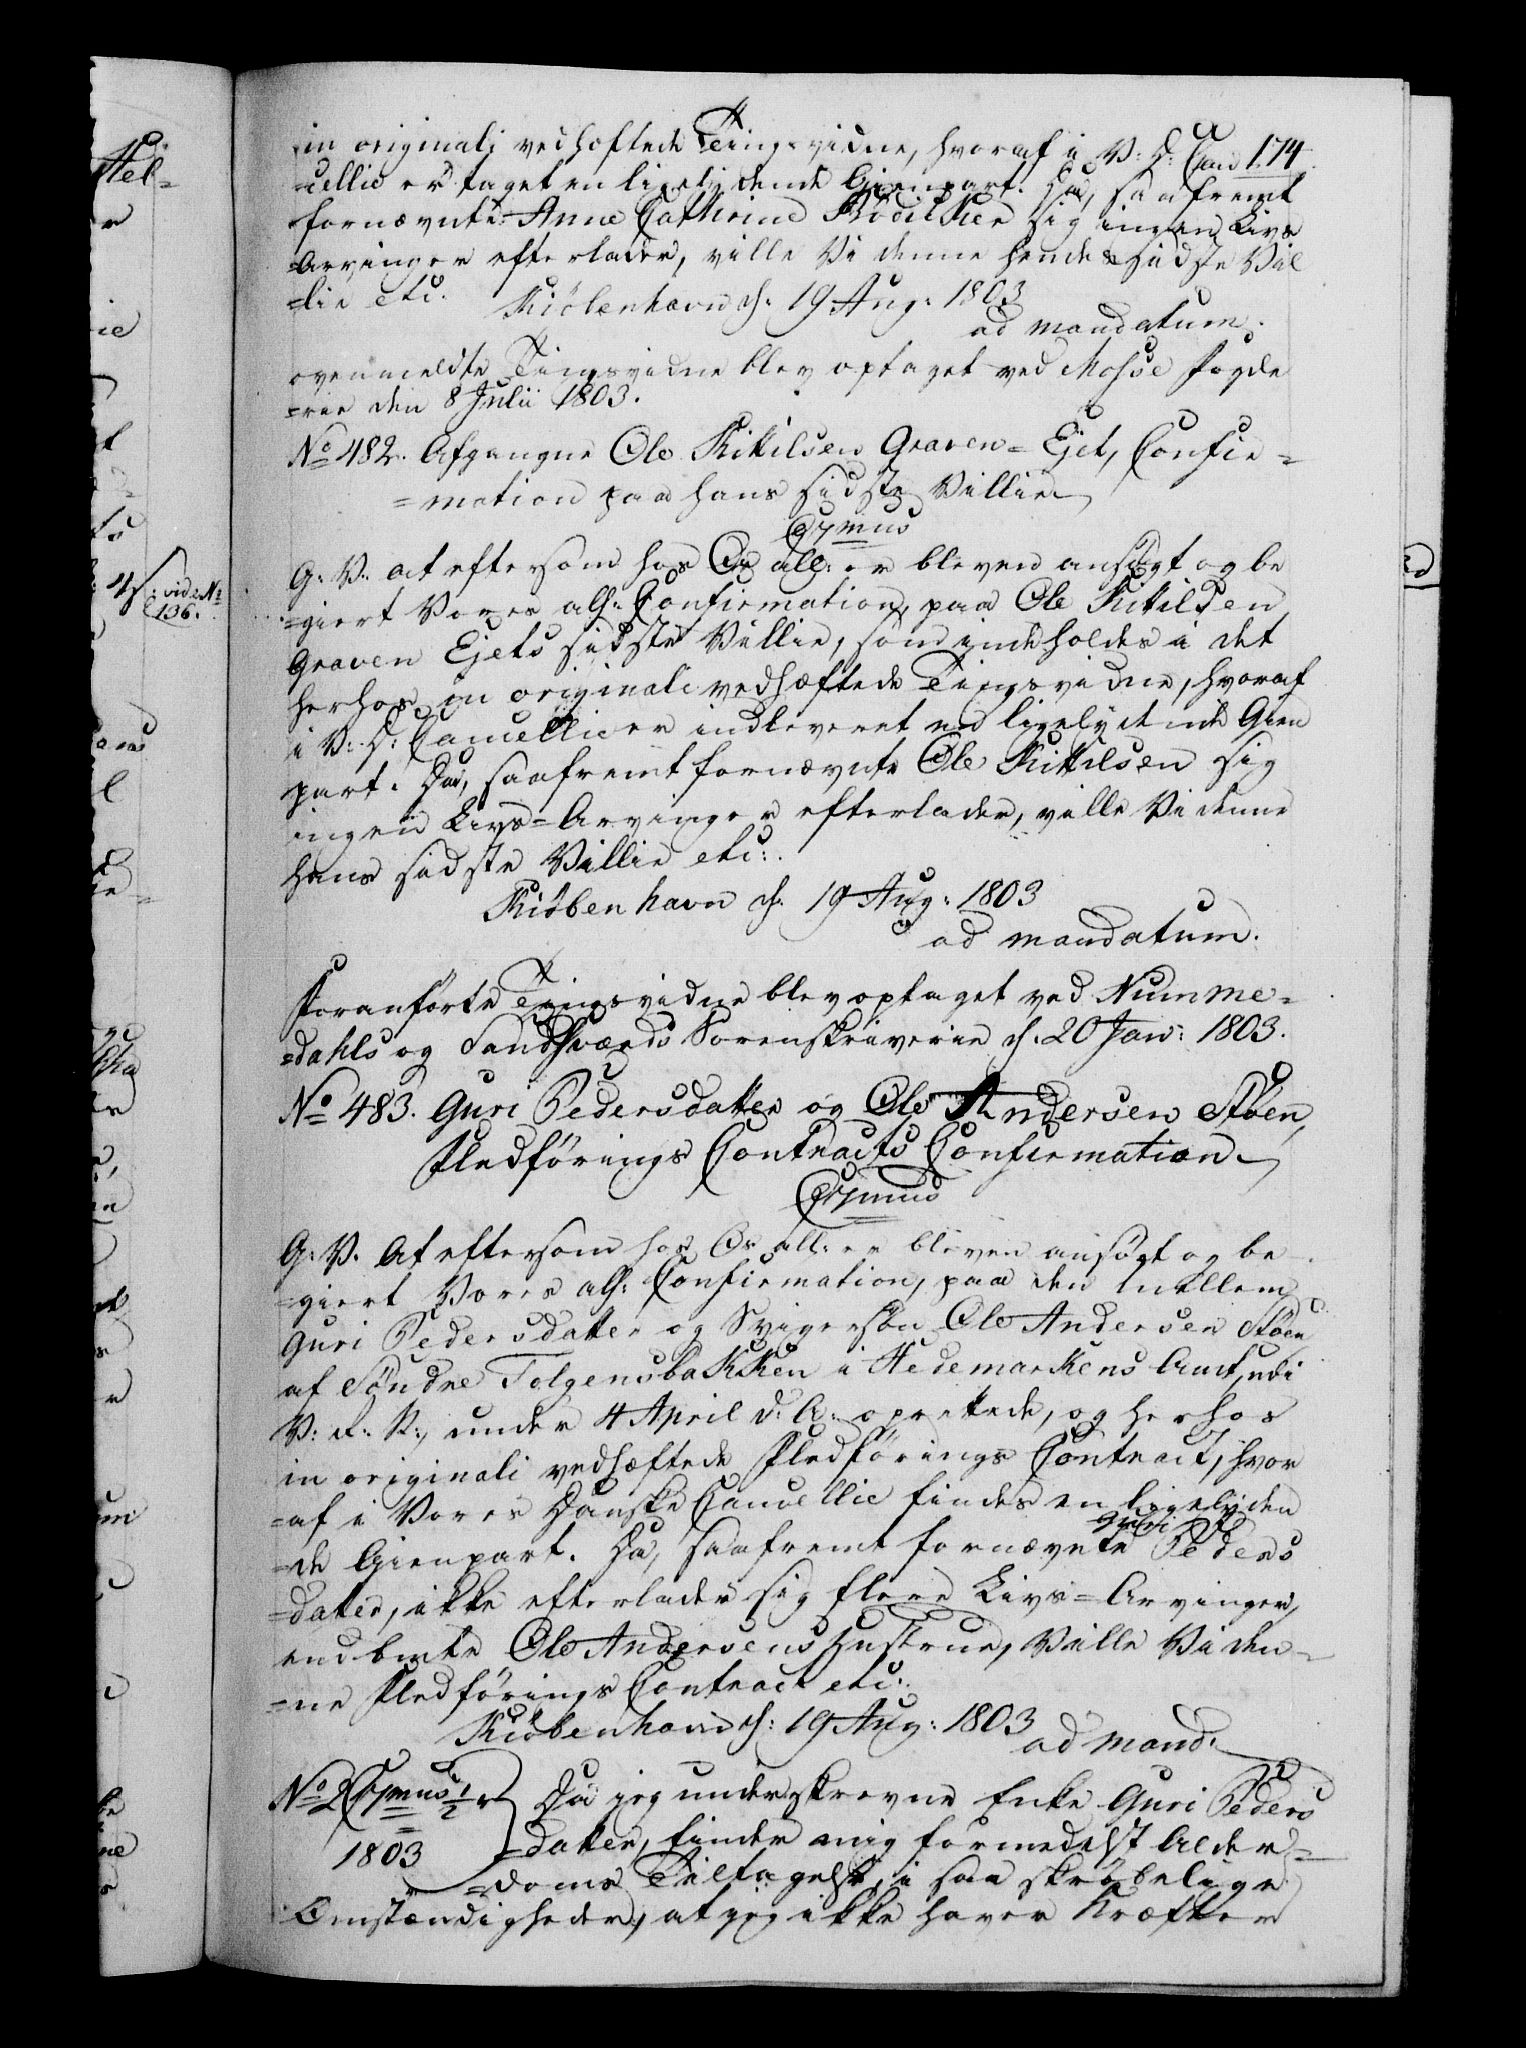 174.
in originali vedhæftede Tingsvidne, hvoraf i V: D: Can
-cellie er taget en ligelydende Gienpart. Da, saafremt
fornævnte Anne Cathrine sig ingen Livs
-Arvinger efterlader, ville Vi denne hendes sidste Vil
-lie etc. Kiöbenhavn d: 19 Aug: 1803
ad mandatum.
ovenmeldte Tingsvidne blev optaget ved Mosse Fogde
=rie den 8 Julii 1803.
No 482. Afgangne Ole Kittilsen Graven-Ejet, Confir=
=mation paa hans sidste Villie
G: V: at eftersom hos Os all: er bleven ansögt og be
=giert Vores all: Confirmation, paa Ole Kittilsen
Graven Ejets sidste Villie, som indeholdes i det
herhos in originali vedhæftede Tingsvidne, hvoraf
i V: D: Cancellie er indleveret en ligelydende Gien
part. Da, saafremt fornævnte Ole Kittilsen sig
ingen Livs=Arvinger efterlader, ville Vi denne
hans sidste Villie etc:.
Kiöbenhavn d. 19 Aug: 1803
ad mandatum.
Foranförte Tingsvidne blev optaget ved Numme=
=dahls og Sandsværds Sorenskriverie d. 20 Jan: 1803.
No 483. Guri Pedersdatter og Ole Andersen Stöen,
Fledförings Contracts Confirmation.
G: V. At eftersom hos Os all: er bleven ansögt og be
=giert Vores all: Confirmation, paa den imellem
Guri Pedersdatter og Svigersön Ole Andersen Stöen
af Söndre Tolgensbakken i Hedemarkens Amt, udi
V: R: N:, under 4 April d: A: oprettede, og herhos
in originali vedhæftede Fledförings Contract, hvor
=af i Vores Danske Cancellie findes en ligelyden
=de Gienpart. Da, saafremt fornævnte Guri Peders
=datter, ikke efterlader sig flere Livs=Arvinger,
end bmte Ole Andersens Hustrue, Ville Vi den=
=ne Fledförings Contract etc:.
Kiöbenhavn d: 19 Aug: 1803
ad mand.
No 2 1/2 r
1803
Da jeg underskrevne Enke Guri Peders
=datter, finder mig formedelst Alder=
=doms Tiltagelse, i saa skröbelige
Omstændigheder, at jeg ikke haver Kræfter
vide No
136.